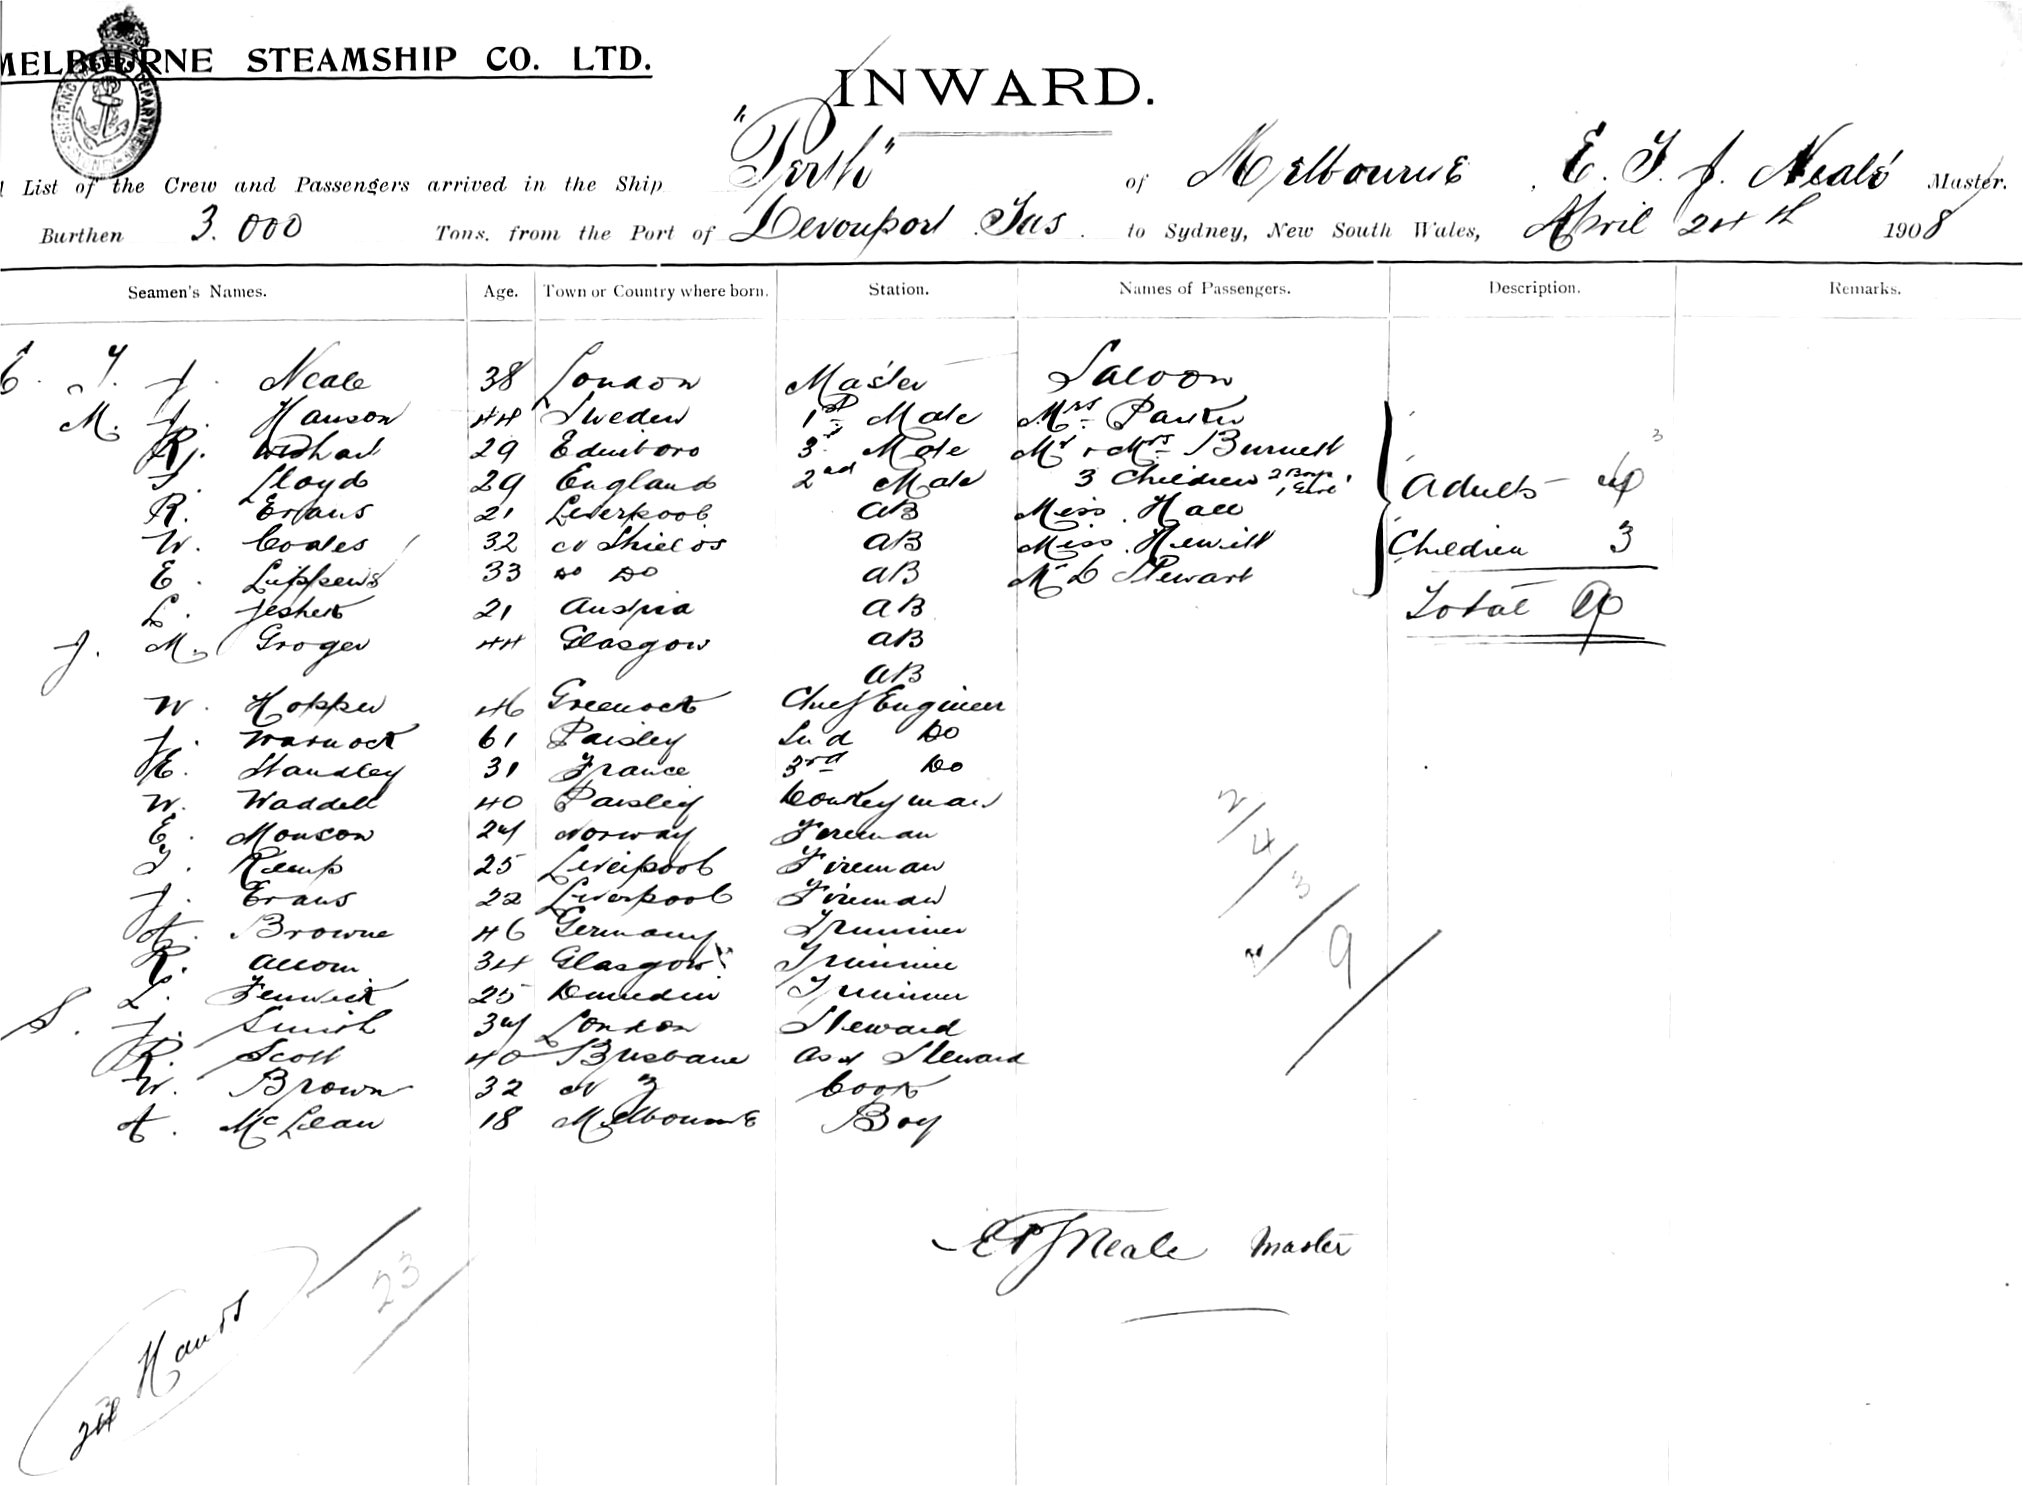 MELBOURNE STEAMSHIP CO. LTD.
INWARD.
List of the Crew and Passengers arrived in the Ship "Perth" of Melbourne, E. T. J. Neale Master.
Burthen 3.000 Tons, from the Port of Devonport Tas. to Sydney, New South Wales, April 24th 1908
Seamen's Names. Age. Town or Country where born. Station. Names of Passengers. Description. Remarks.
E. T. J. Neale 38 London Master Saloon
M. J. Hanson 44 Sweden 1st Mate Mrs Parker
R. J. 29 Edinboro 3rd Mate Mr & Mrs Burnett
T. Lloyd 29 England 2nd Mate 3 Children 2 Boys 1 Girl Adults
R. Evans 21 Liverpool AB Miss Hall
W. Coales 32 N Shields AB Miss Hewitt Children 3
E. Lippens 33 Do Do AB Mr L Stewart
L. 21 Austria AB Total
J. M. Groger 44 Glasgow AB
AB
W. Hopper 46 Greenock Chief Engineer
J. Warnock 61 Paisley 2nd Do
E. Standley 31 France 3rd Do
W. Waddell 40 Paisley Donkeyman
E. Monson 24 Norway Fireman
T. Kemp 25 Liverpool Fireman
J. Evans 22 Liverpool Fireman
A. Browne 46 Germany Trimmer
R. Allom 34 Glasgow Trimmer
L. Fenwick 25 Dunedin Trimmer
S. J. Smith 34 London Steward
R. Scott 40 Brisbane Asst Steward
W. Brown 32 N Z Cook
A. McLean 18 Melbourne Boy
2/4/3/9
E T J Neale Master
Hands
23